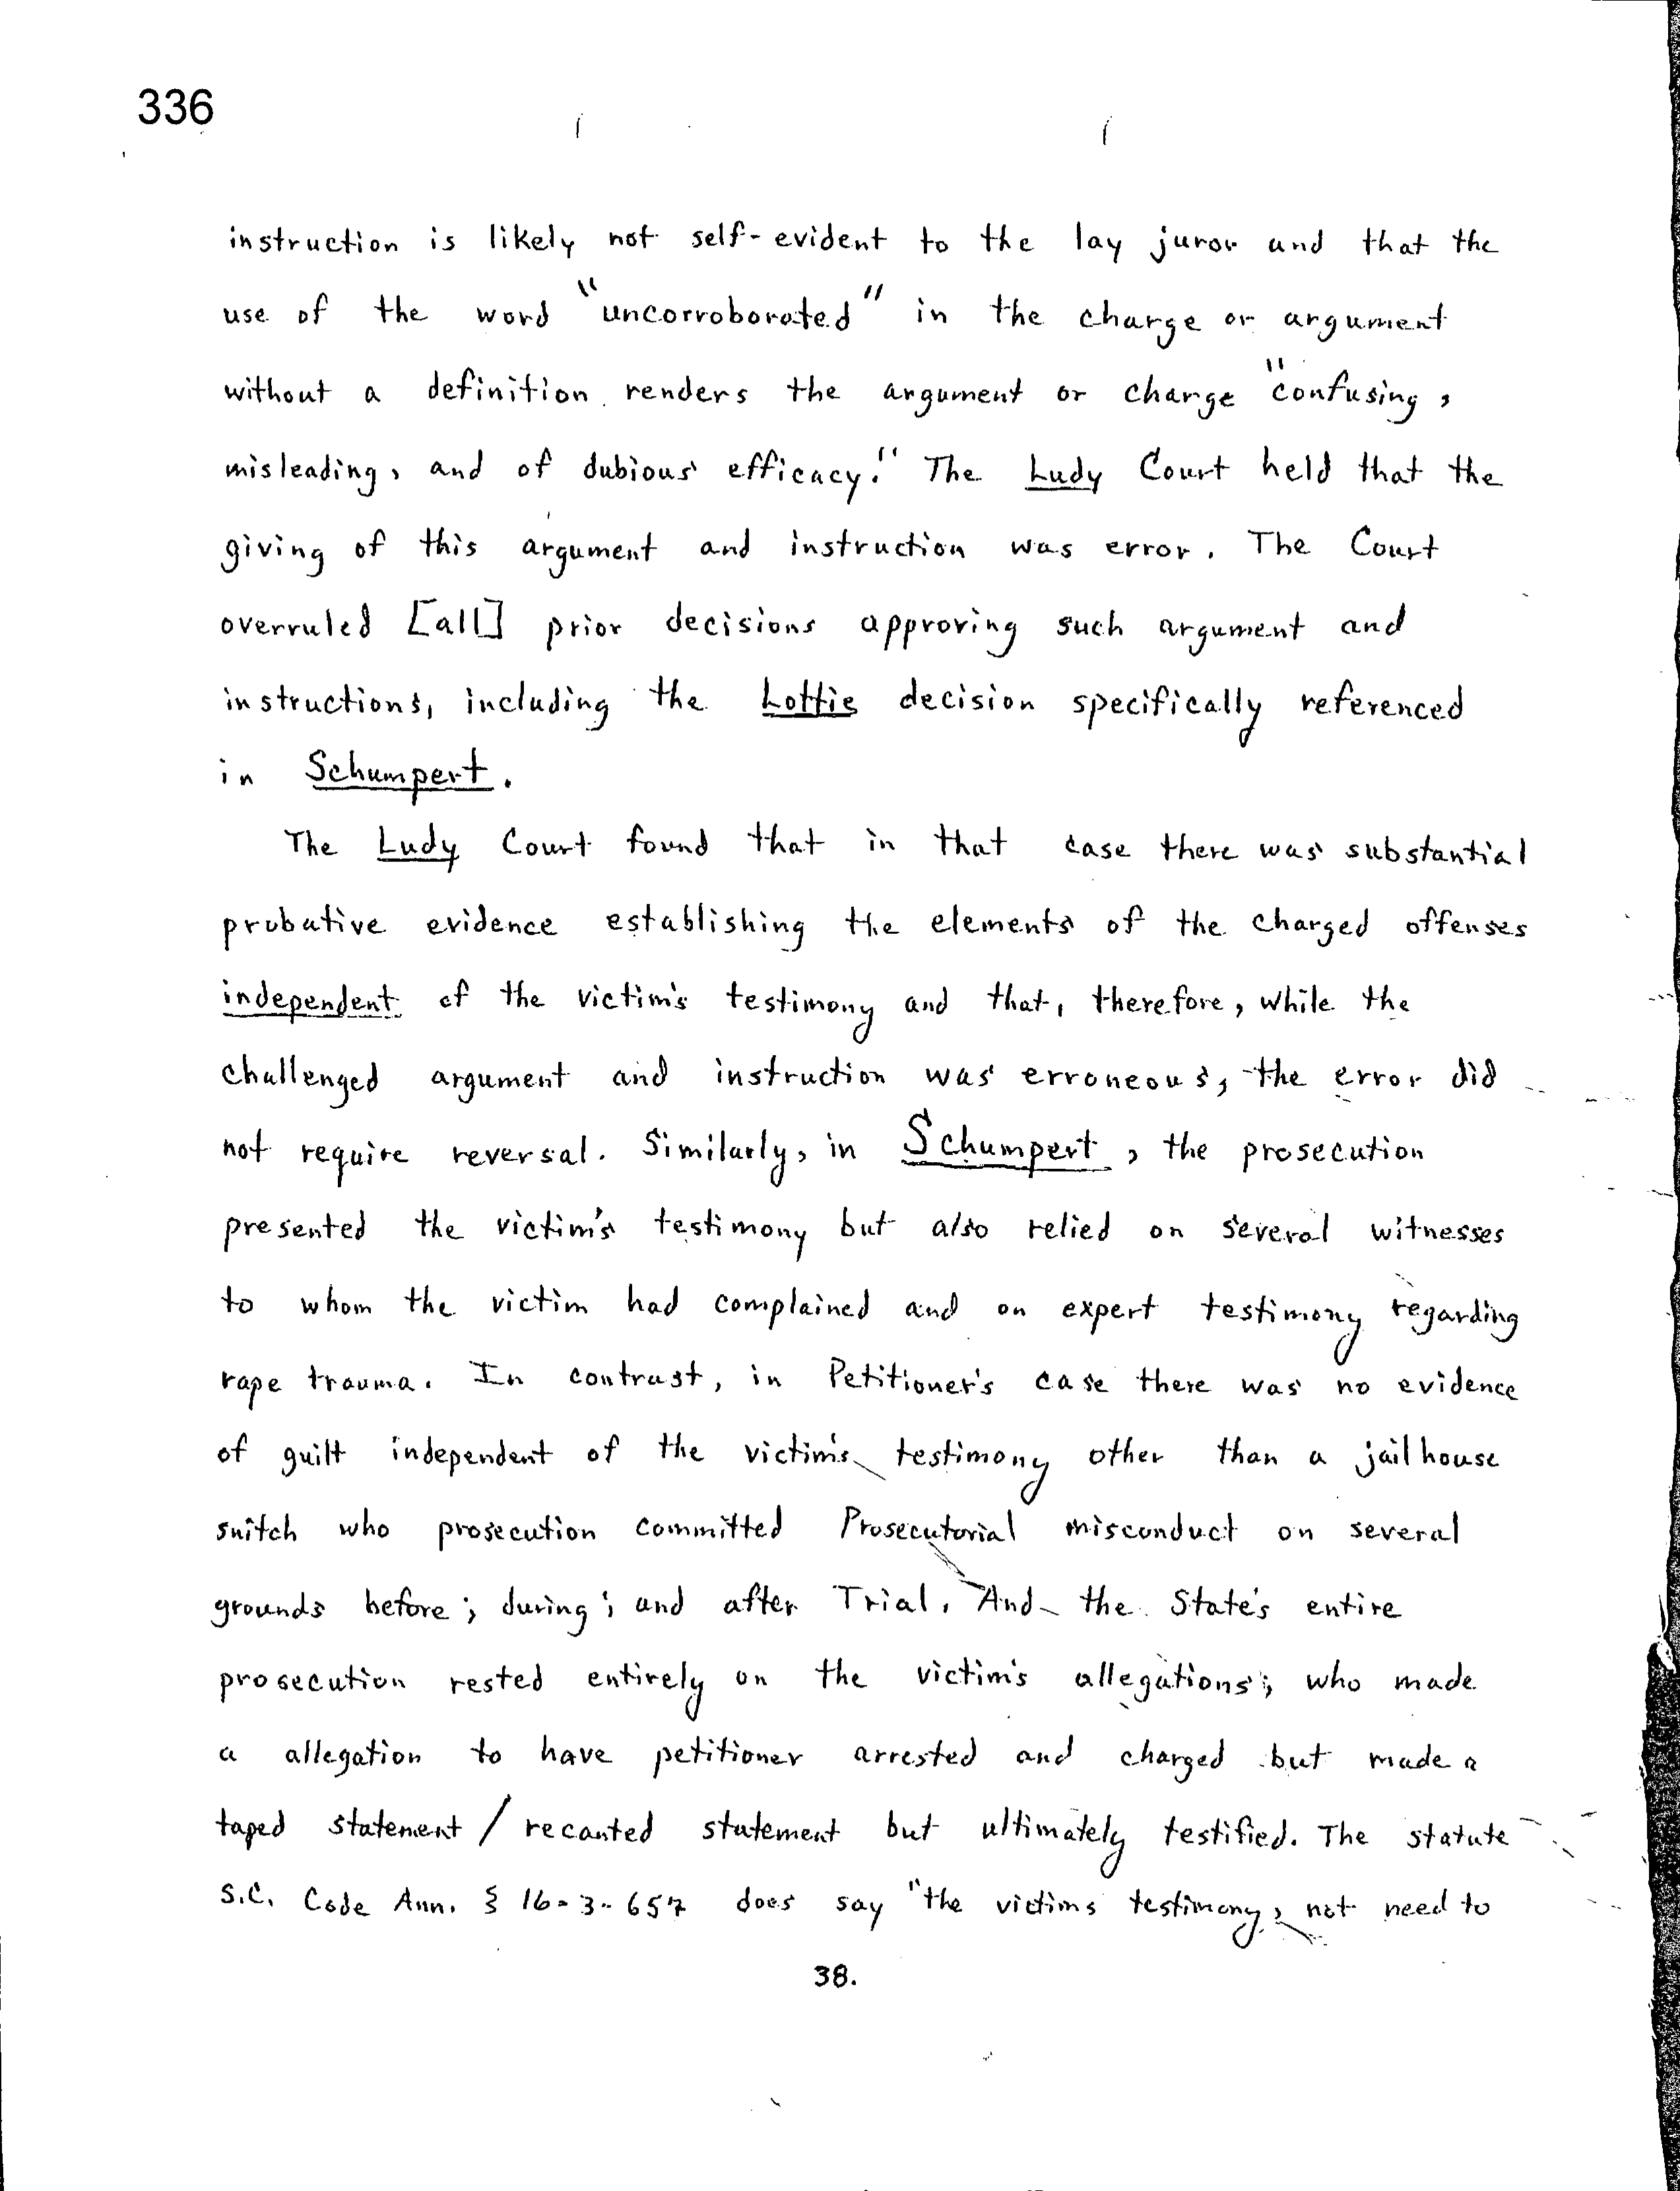 336
instruction is likely not self-evident to the lay juror and that the
use of the word "uncorroborated" in the charge or argument
without a definition renders the argument or charge "confusing,
misleading, and of dubious efficacy." The Ludy Court held that the
giving of this argument and instruction was error. The Court
overruled [all] prior decisions approving such argument and
instructions, including the Lottie decision specifically referenced
in Schumpert.
The Ludy Court found that in that case there was substantial
probative evidence establishing the elements of the charged offenses
independent of the victim's testimony and that, therefore, while the
challenged argument and instruction was erroneous, the error did
not require reversal. Similarly, in Schumpert, the prosecution
presented the victim's testimony but also relied on several witnesses
to whom the victim had complained and on expert testimony regarding
rape trauma. In contrast, in Petitioner's case there was no evidence
of guilt independent of the victim's testimony other than a jailhouse
snitch who prosecution committed Prosecutorial misconduct on several
grounds before; during; and after Trial. And the State's entire
prosecution rested entirely on the victim's allegations; who made
a allegation to have petitioner arrested and charged but made a
taped statement / recanted statement but ultimately testified. The statute
S.C. Code Ann. § 16-3-657 does say "the victims testimony, not need to
38.